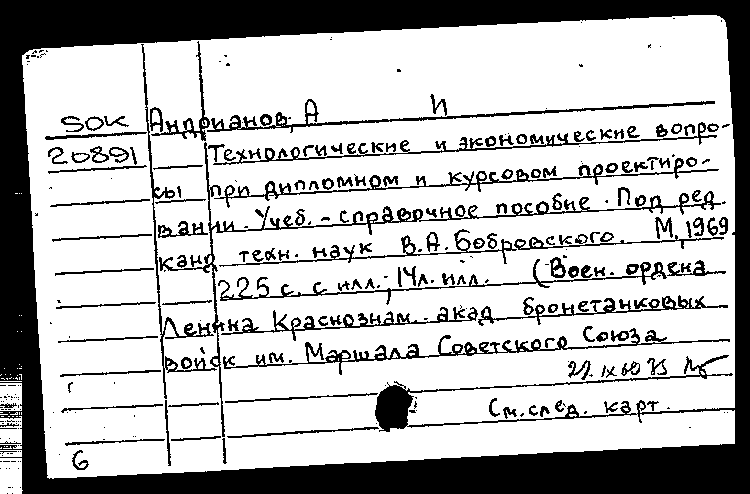 SOK Андрианов, А И
20891 Технологические и экономические вопро-
сы при дипломном и курсовом проектиро-
вании. Учеб.-справочное пособие. Под ред.
канд техн. наук В.А.Бобровского. М, 1969.
225 с. с илл.; 14л. илл. (Воен. ордена
Ленина Краснознам. акад бронетанковых
войск им. Маршала Советского Союза
См.след. карт.
6